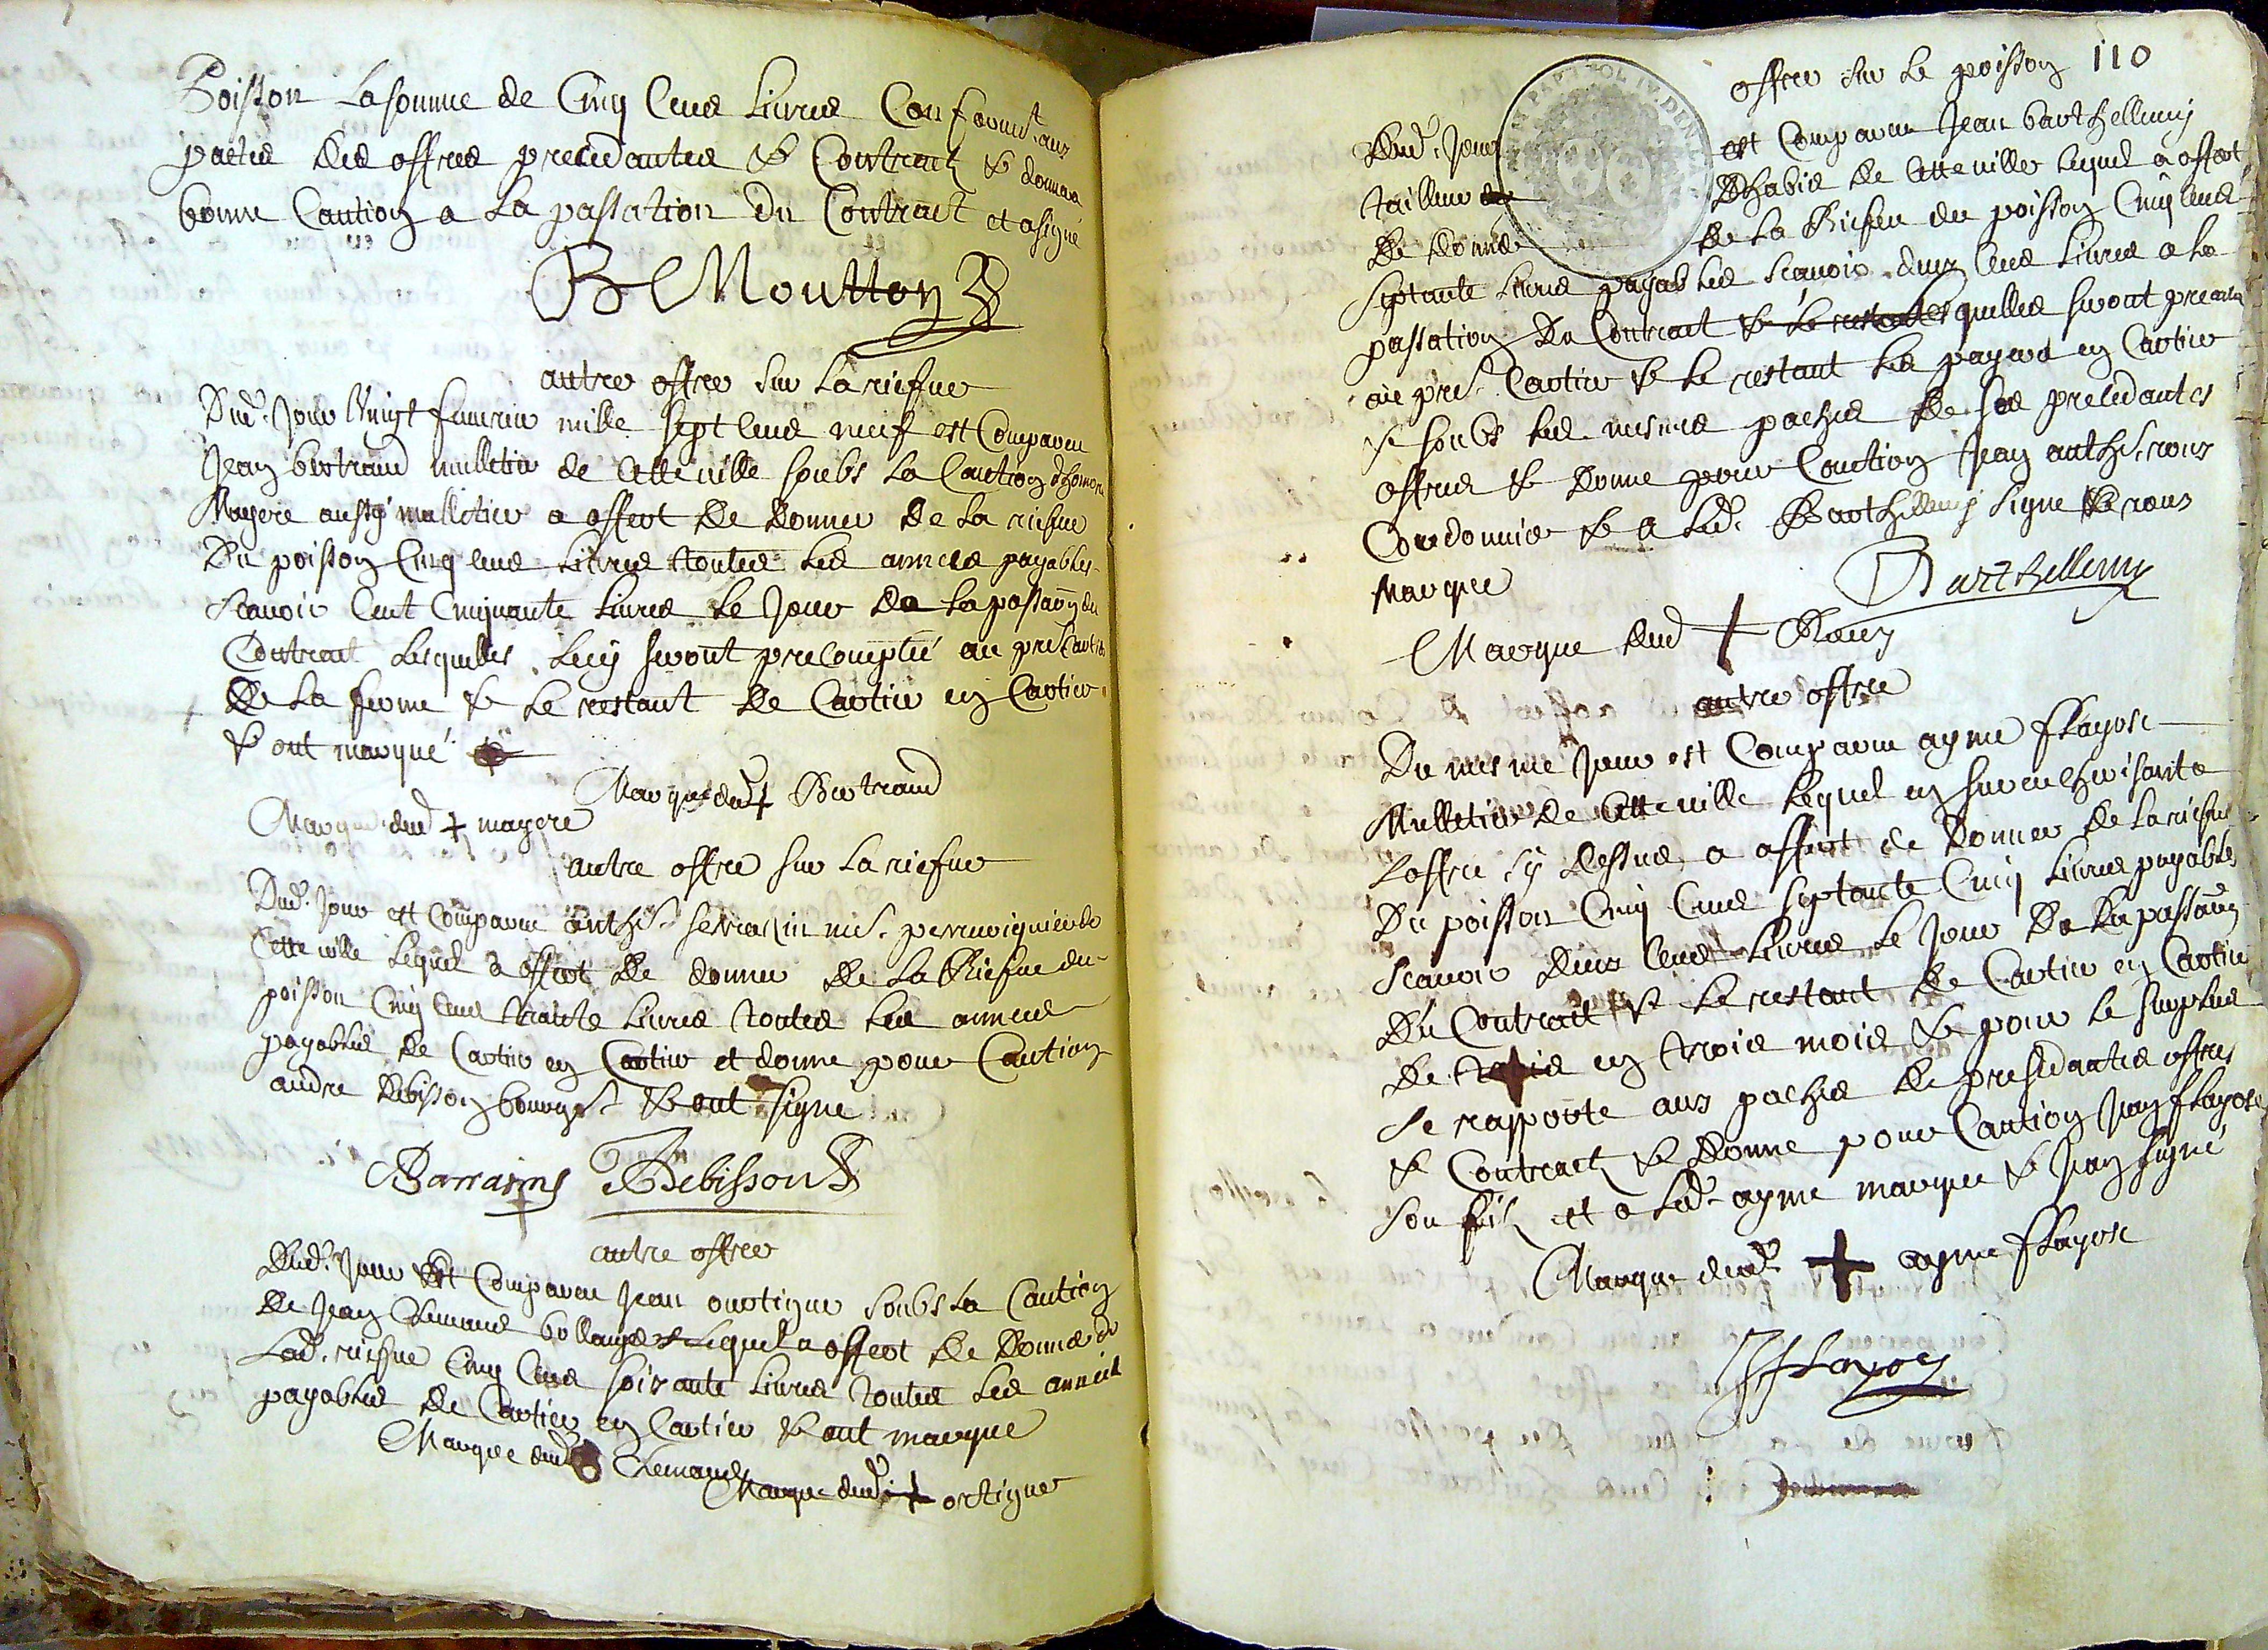 Poisson La somme de Cinq Cens Livres Conformt. aux
pactes Des offres precedantes & Contract & donnera
bonne Caution a La passation Du Contract et a signé
B Moutton
autre offre sur La riefve
Dud. Jour Vingt feuvrier mille sept Cens neuf est Compareu
Jean bertrand mulletier de Cette ville soubs La Caution dhonnoré
Mayere aussy mulletier a offert De Donner De La riefve
Du poisson Cinq Cens Livres toutes Les annees payables
Scauoir Cent Cinquante Livres Le Jour De La passaõn du
Contract Lesquelles Luy seront precomptée au pre. Cartier
De La ferme & Le restant De Cartier en Cartier
& ont marqué
Marque dud + Bertrand
Marque dud + mayere
autre offre sur La riefve
Dud. Jour est Comparu anthe. me. perruquier de
Cette ville Lequel a offert De donner De La Riefve du
poisson Cinq Cens trante Livres toutes Les annees
payables De Cartier en Cartier et donne pour Caution
andre Debisson bourgs. & ont signe
Barrasins Debisson
autre offre
Dud. Jour Est Comparu Jean ourtigue soubs La Caution
De Jean Clemans bollanger Lequel a offert De Donner de
Lad. riefve Cinq Cens soixante Livres toutes Les années
payables De Cartier en Cartier & ont marque
Marque dud Clemans
Marque dud + ortigue
110
offre sur Le poisson
Dud. Jour est Comparu Jean barthellemy
tailleur Dhabis De Cette ville Lequel a offert
De Donner De La Riefve du poisson Cinq Cens
Septante Livres payables Scauoir deux Cens Livres a La
passation Du Contract & Le restant Lesquelles seront
au pre. Cartier & Le restant Les payera en Cartier
& soubs Les mesmes paches De Ses precedantes
offres & Donne pour Caution Jean anthe. roux
Cordonnier & a Led. Barthellemy signe & roux
Marque
Barthellemy
Marque dud + Roux
autre offre
Du mesme Jour est Comparu ayme fLayosc
Mulletier De Cette ville Lequel en surencherisant a
Loffre sy Dessus a offert de Donner De La riefve
Du poisson Cinq Cens septante Cinq Livres payables
Scauoir Deux Cens Livres Le Jour De La passaõn
Du Contract & Le restant De Cartier en Cartier
De trois en trois mois & pour Le surplus
Se rapporte aux paches De presedantes offres
& Contract & Donne pour Caution Jean fLayosc
son filz et a Led. ayme marque & Jean signé
Marque dud. + ayme fLayosc
JfLayosc